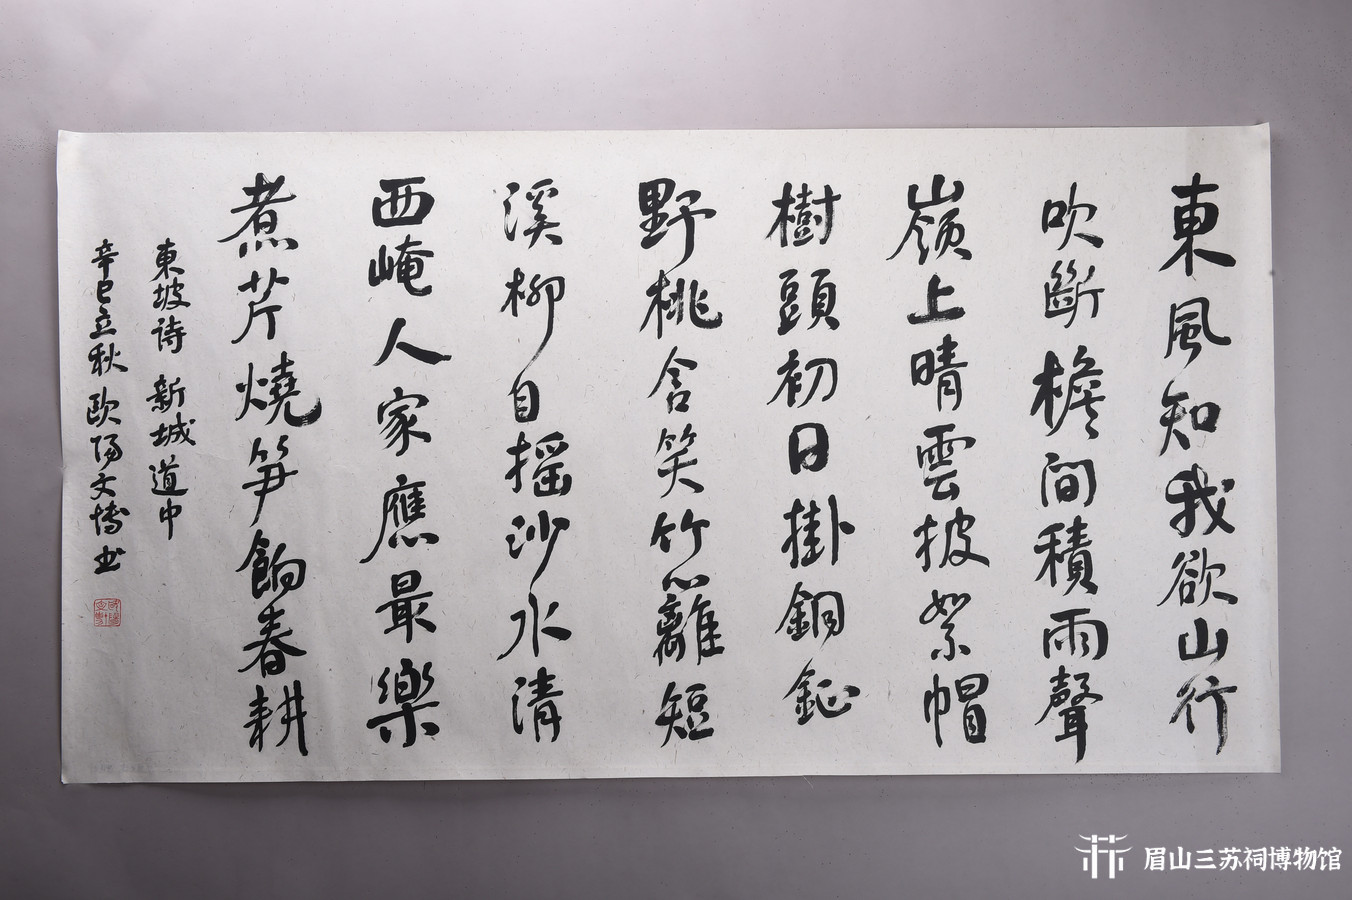 東風知我欲山行
吹斷檐間積雨聲
嶺上晴雲披絮帽
樹頭初日掛銅鉦
野桃含笑竹籬短
溪柳自摇沙水清
西崦人家應最樂
煮芹燒笋餉春耕
東坡诗 新城道中
辛巳立秋 欧阳文博书
眉山三苏祠博物馆